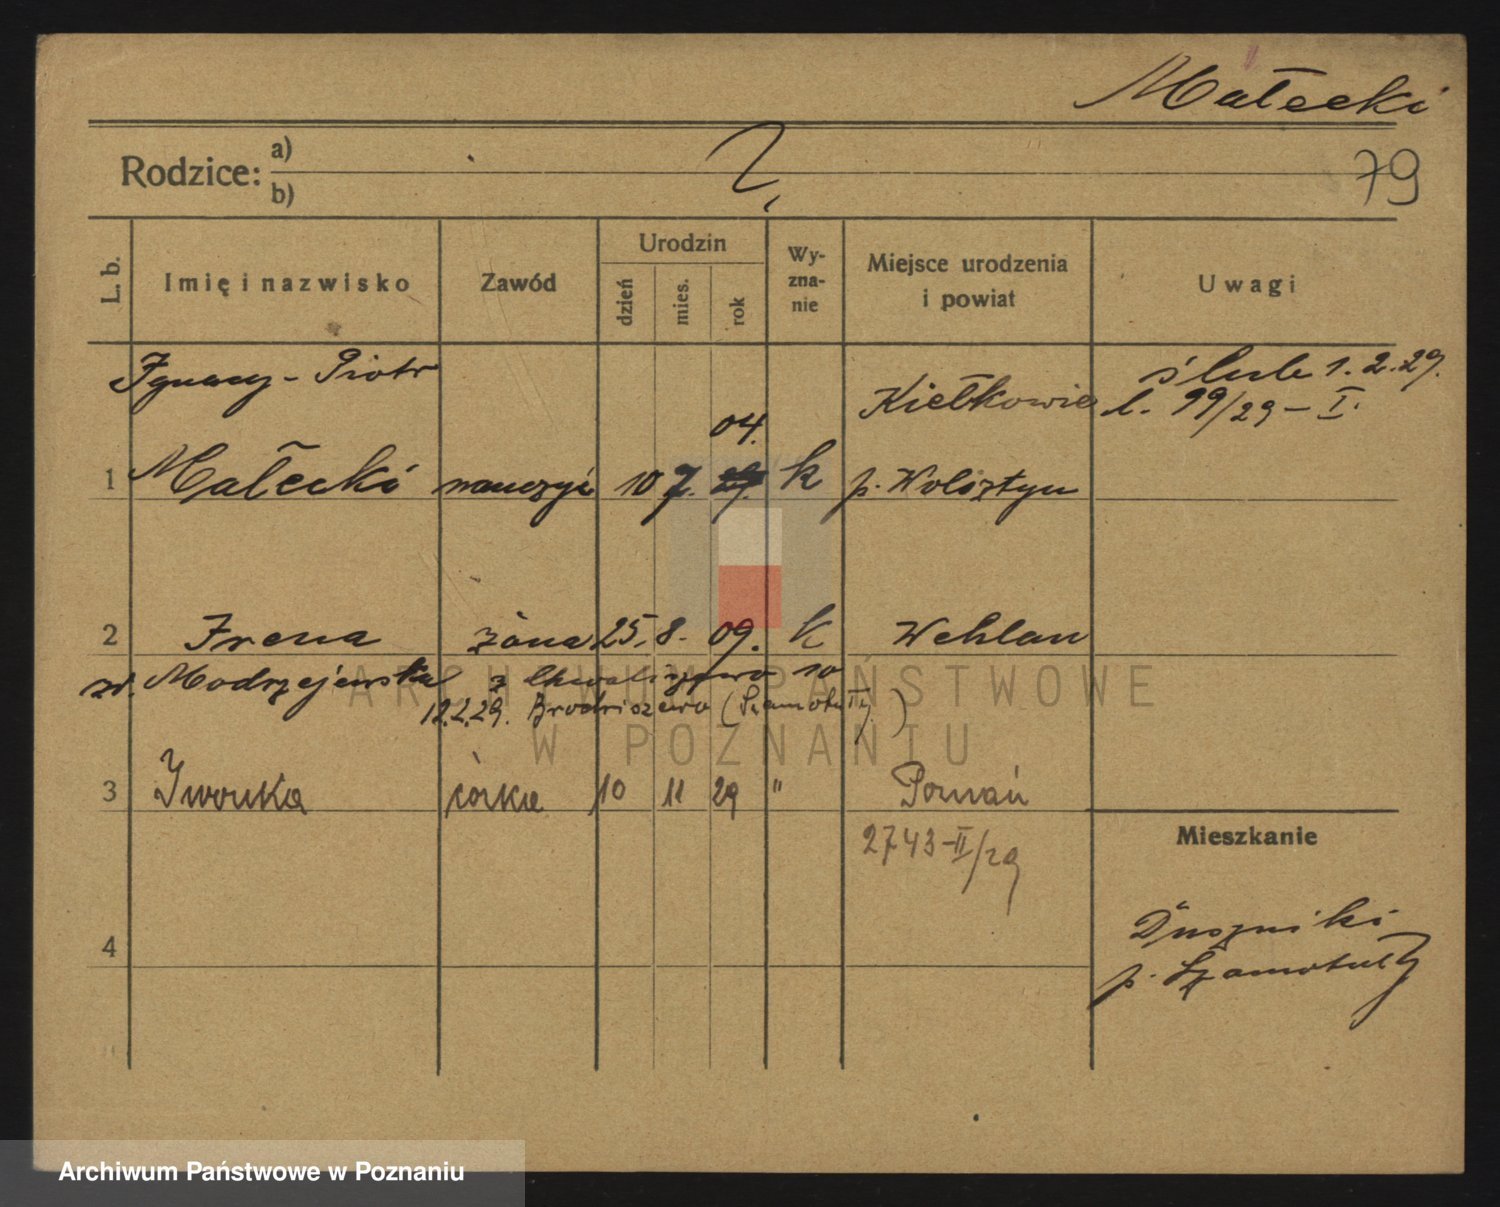 Małecki
Rodzice: a)
b)
79
L. b.
Imię i nazwisko
Zawód
Urodzin
dzień
mies.
rok
Wy-
zna-
nie
Miejsce urodzenia
i powiat
Uwagi
Ignacy - Piotr
Kiełkowie
ślub 1.2.29.
l. 99/29 - I.
04.
1 Małecki nauczyc 10 7. k p. Wolsztyn
2 Irena żona 25. 8. 09. k Wehlau
zd. Modrzejewska z Chwaliszewo 10
12.2.29. Brodziszewo (Szamotuły.)
3 Iwonka córka 10 11 29 " Poznań
2743-II/29
Mieszkanie
4
Duszniki
p. Szamotuły
ARCHIWUM PAŃSTWOWE
W POZNANIU
Archiwum Państwowe w Poznaniu